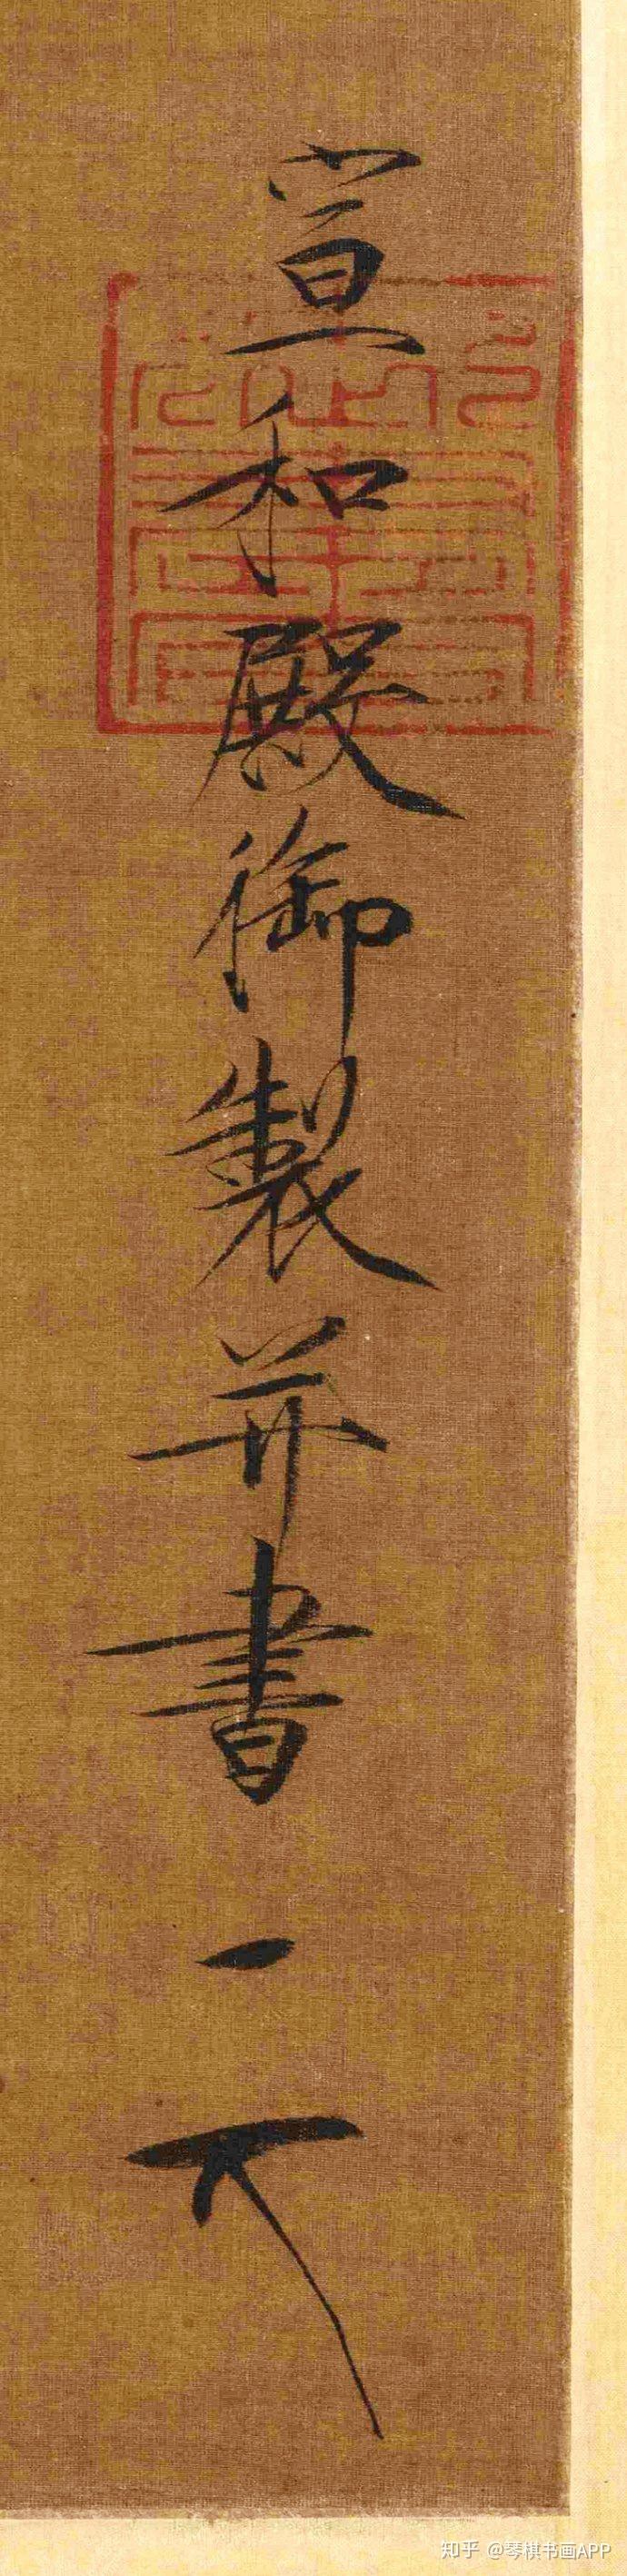 宣和殿御製并書
天下一人
知乎 @琴棋书画APP